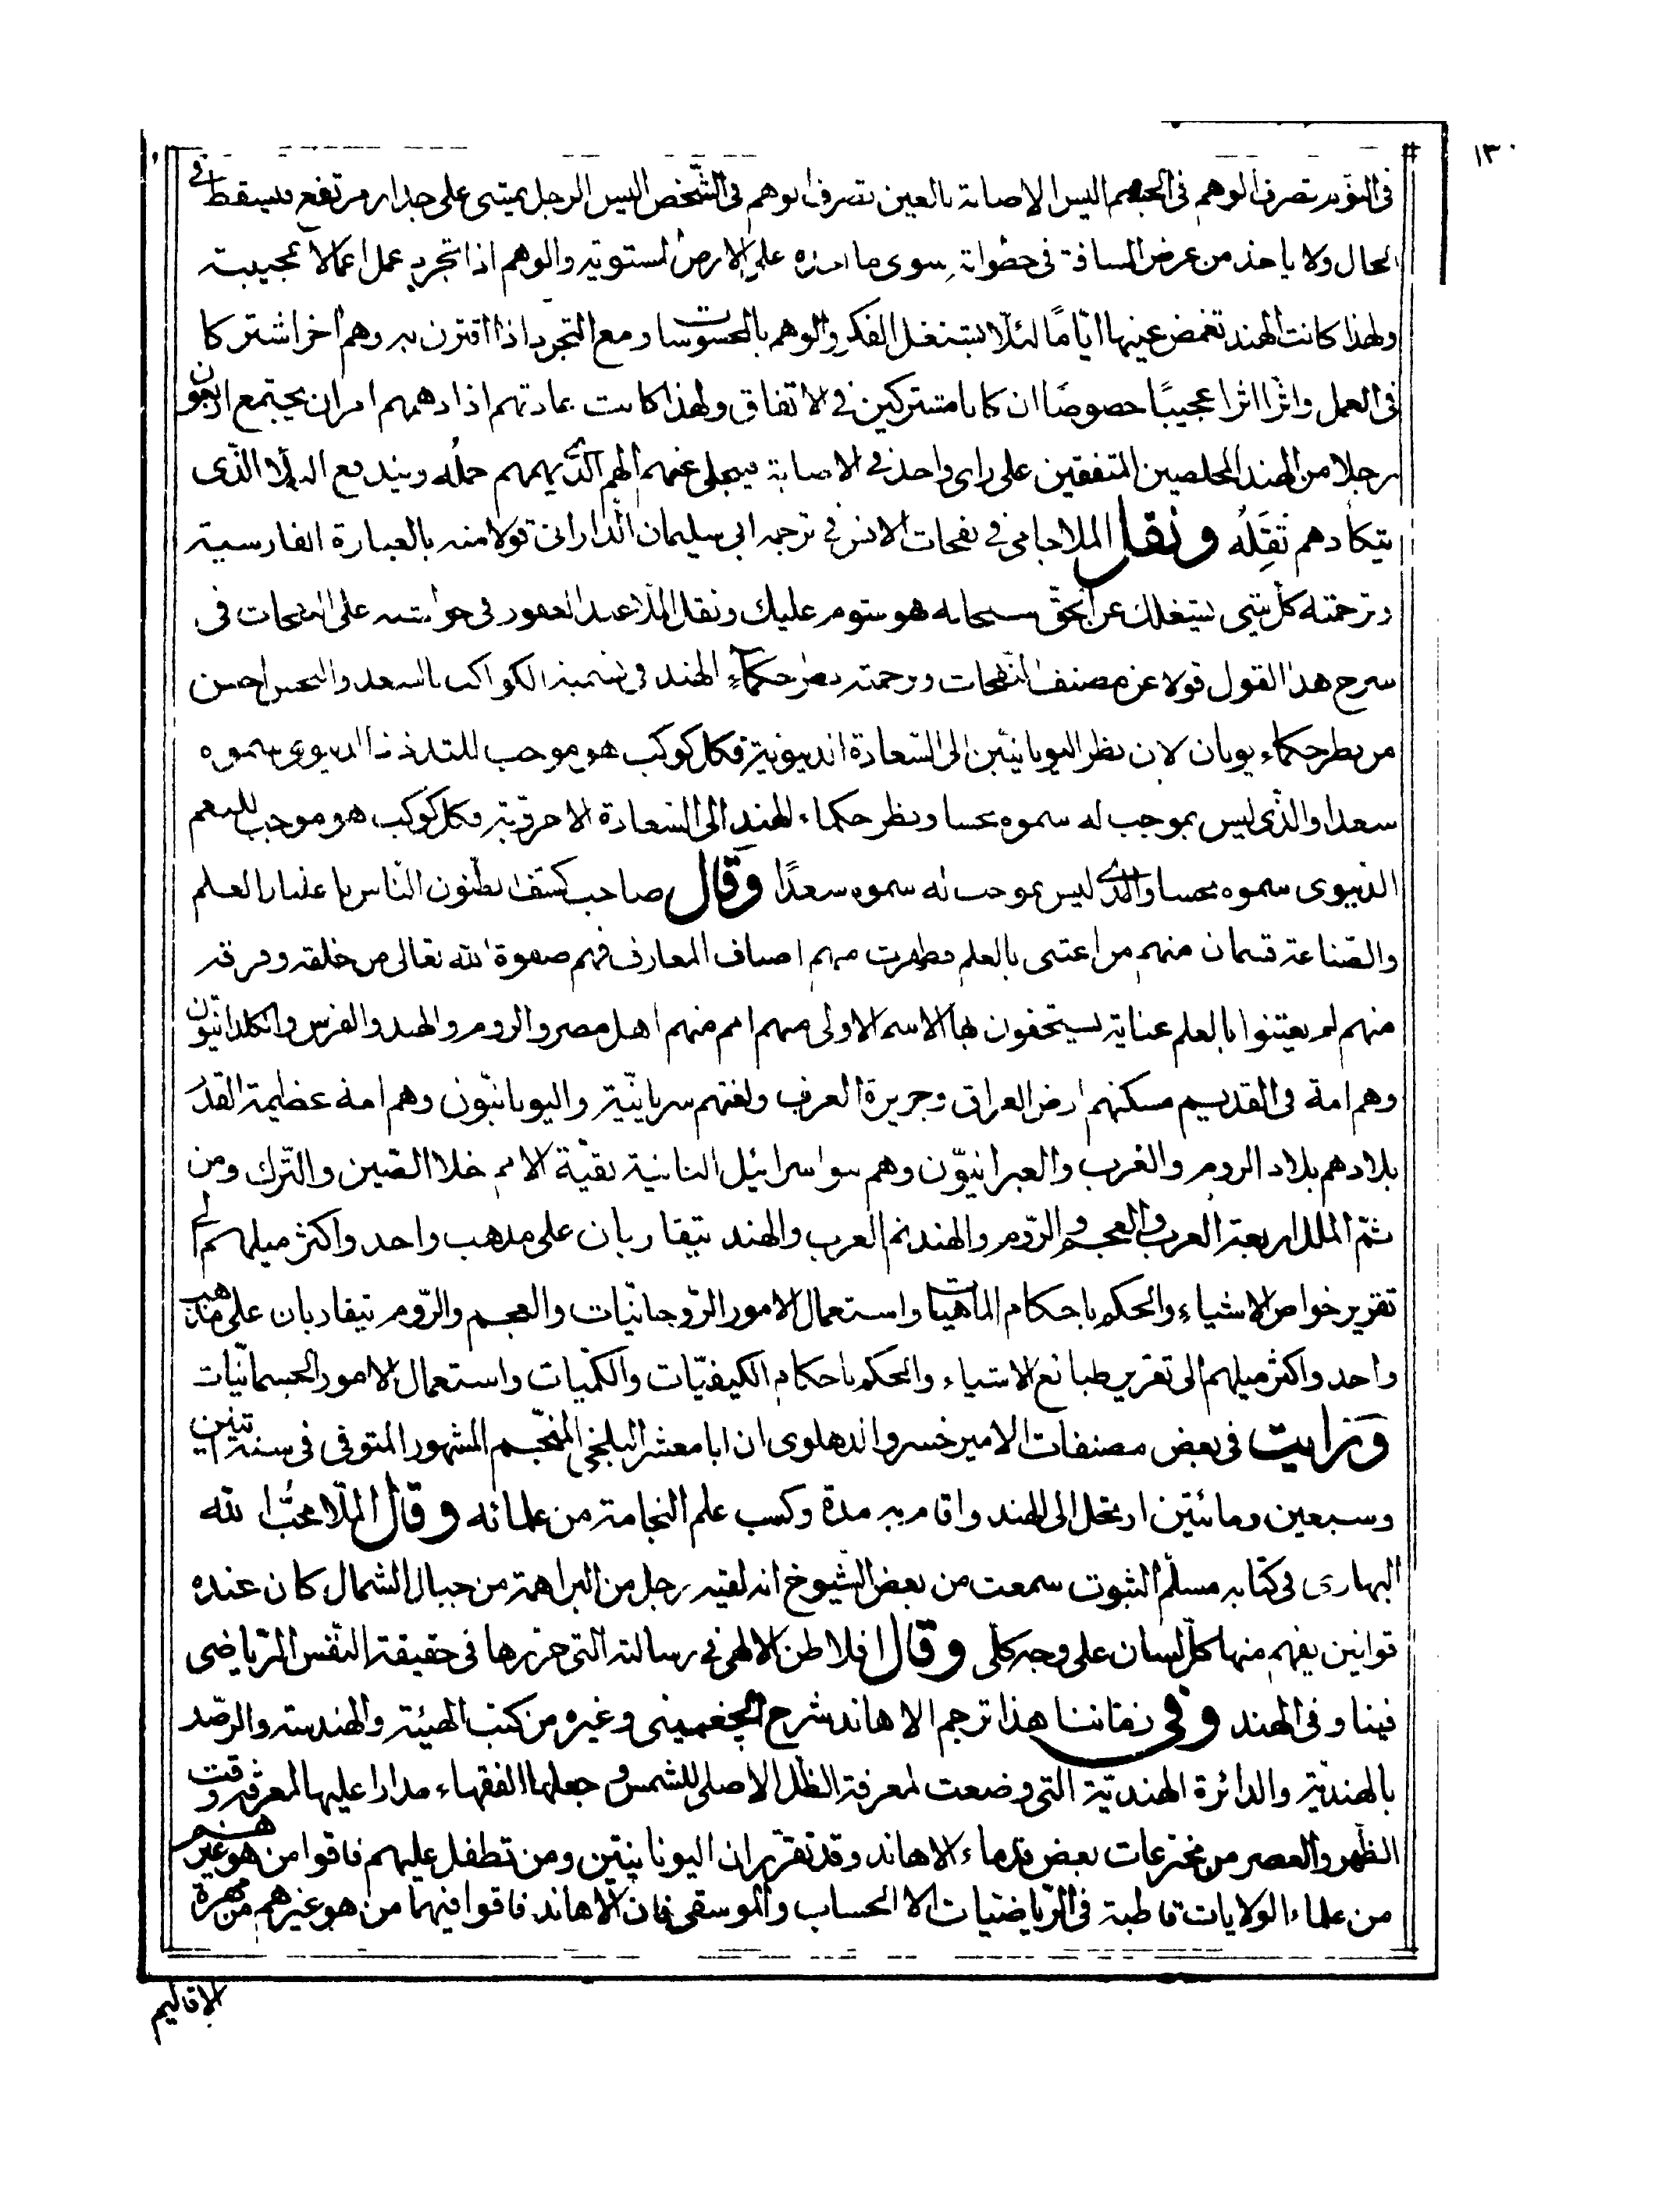 ١٣٠
فى التوّبد تصرف الوهم فى الجسم اليس الاصابة بالعين تصرف الوهم فى الشّخص اليس الرجل يمشى على جدار مرتفع فيسقط فى
الحال ولا ياخذ من عرض المسافة فى خطواته سوى ما اخذه على الارض المستوية والوهم اذا تجرد عمل اعمالا عجيبة
ولهذا كانت الهند تغمض عينيها ايّامًا لئلّا يشتغل الفكر والوهم بالمحسوسات ومع التجرد اذا اقترن به وهم اخر اشتركا
فى العمل واثرا اثرا عجيبًا خصوصًا ان كانا مشتركين فى الاتفاق ولهذا كانت عادتهم اذا دهمهم امر ان يجتمع اربعون
رجلا من الهند المخلصين المتفقين على راى واحد فى الاصابة فينجلى عنهم المهم الذى يهمهم حمله ويندفع البلاء الذى
يتكادهم ثَقِلُه ونقل الملا جامى فى نفحات الانس فى ترجمة ابى سليمان الدّارانى قولا منه بالعبارة الفارسية
وترجمته كل شىء يشغلك عن الحقّ سبحانه هو شوم عليك ونقل الملا عبد الغفور فى حواشيه على النفحات فى
شرح هذا القول قولا عن مصنف النّفحات وترجمته نظر حكماء الهند فى تسمية الكواكب بالسعد والنحس احسن
من نظر حكماء يونان لان نظر اليونانيّين الى السّعادة الدنيوية فكل كوكب هو موجب للتلذذ الدنيوى سموه
سعدا والذى ليس بموجب له سموه نحسا ونظر حكماء الهند الى السّعادة الاخرويّة فكل كوكب هو موجب للتنعم
الدنيوى سموه نحسا والذى ليس بموجب له سموه سعدًا وقال صاحب كشف الظّنون النّاس باعتبار العلم
والصّناعة قسمان منهم من اعتنى بالعلم فظهرت منهم اصناف المعارف فهم صفوة الله تعالى من خلقه وفرقة
منهم لم يعتنوا بالعلم عناية يستحقون بها الاسم الاولى منهم امم منهم اهل مصر والروم والهند والفرس والكلدانيّون
وهم امة فى القديم مسكنهم ارض العراق وجزيرة العرب ولغتهم سريانيّة واليونانيّون وهم امة عظيمة القدر
بلادهم بلاد الروم والغرب والعبرانيّون وهم بنو اسرائيل الثانية بقيّة الامم خلا الصّين والتّرك ومن
ثمّ الملل اربعة العرب والعجم والرّوم والهند ثم العرب والهند يتقاربان على مذهب واحد واكثر ميلهم الى
تقرير خواص الاشياء والحكم باحكام الماهيّات واستعمال الامور الرّوحانيّات والعجم والرّوم يتقاربان على مذهب
واحد واكثر ميلهم الى تقرير طبائع الاشياء والحكم باحكام الكيفيّات والكمّيات واستعمال الامور الجسمانيّات
ورايت فى بعض مصنفات الامير خسرو الدهلوى ان ابا معشر البلخى المنجّم المشهور المتوفى فى سنة اثنتين
وسبعين ومائتين ارتحل الى الهند واقام به مدة وكسب علم النجامة من علمائه وقال الملّا محبّ الله
البهارى فى كتابه مسلّم الثبوت سمعت من بعض الشّيوخ انه لقيه رجل من البراهمة من جبال الشمال كان عنده
قوانين يفهم منها كلّ لسان على وجه كلى وقال افلاطن الالهى فى رسالته التى حررها فى حقيقة النّفس الرّياضى
فينا وفى الهند وفى زماننا هذا ترجم الاهاند شرح الچغمينى وغيره من كتب الهيئة والهندسة والرصّد
بالهنديّة والدائرة الهنديّة التى وضعت لمعرفة الظّل الاصلى للشمس وجعلها الفقهاء مدارا عليها لمعرفة وقت
الظّهر والعصر من مخترعات بعض قدماء الاهاند وقد تقرّر ان اليونانيّين ومن تطفل عليهم فاقوا من هو غيرهم
من علماء الولايات قاطبة فى الرّياضيّات الا الحساب والموسقى فان الاهاند فاقوا فيهما من هو غيرهم من مهرة
الاقاليم